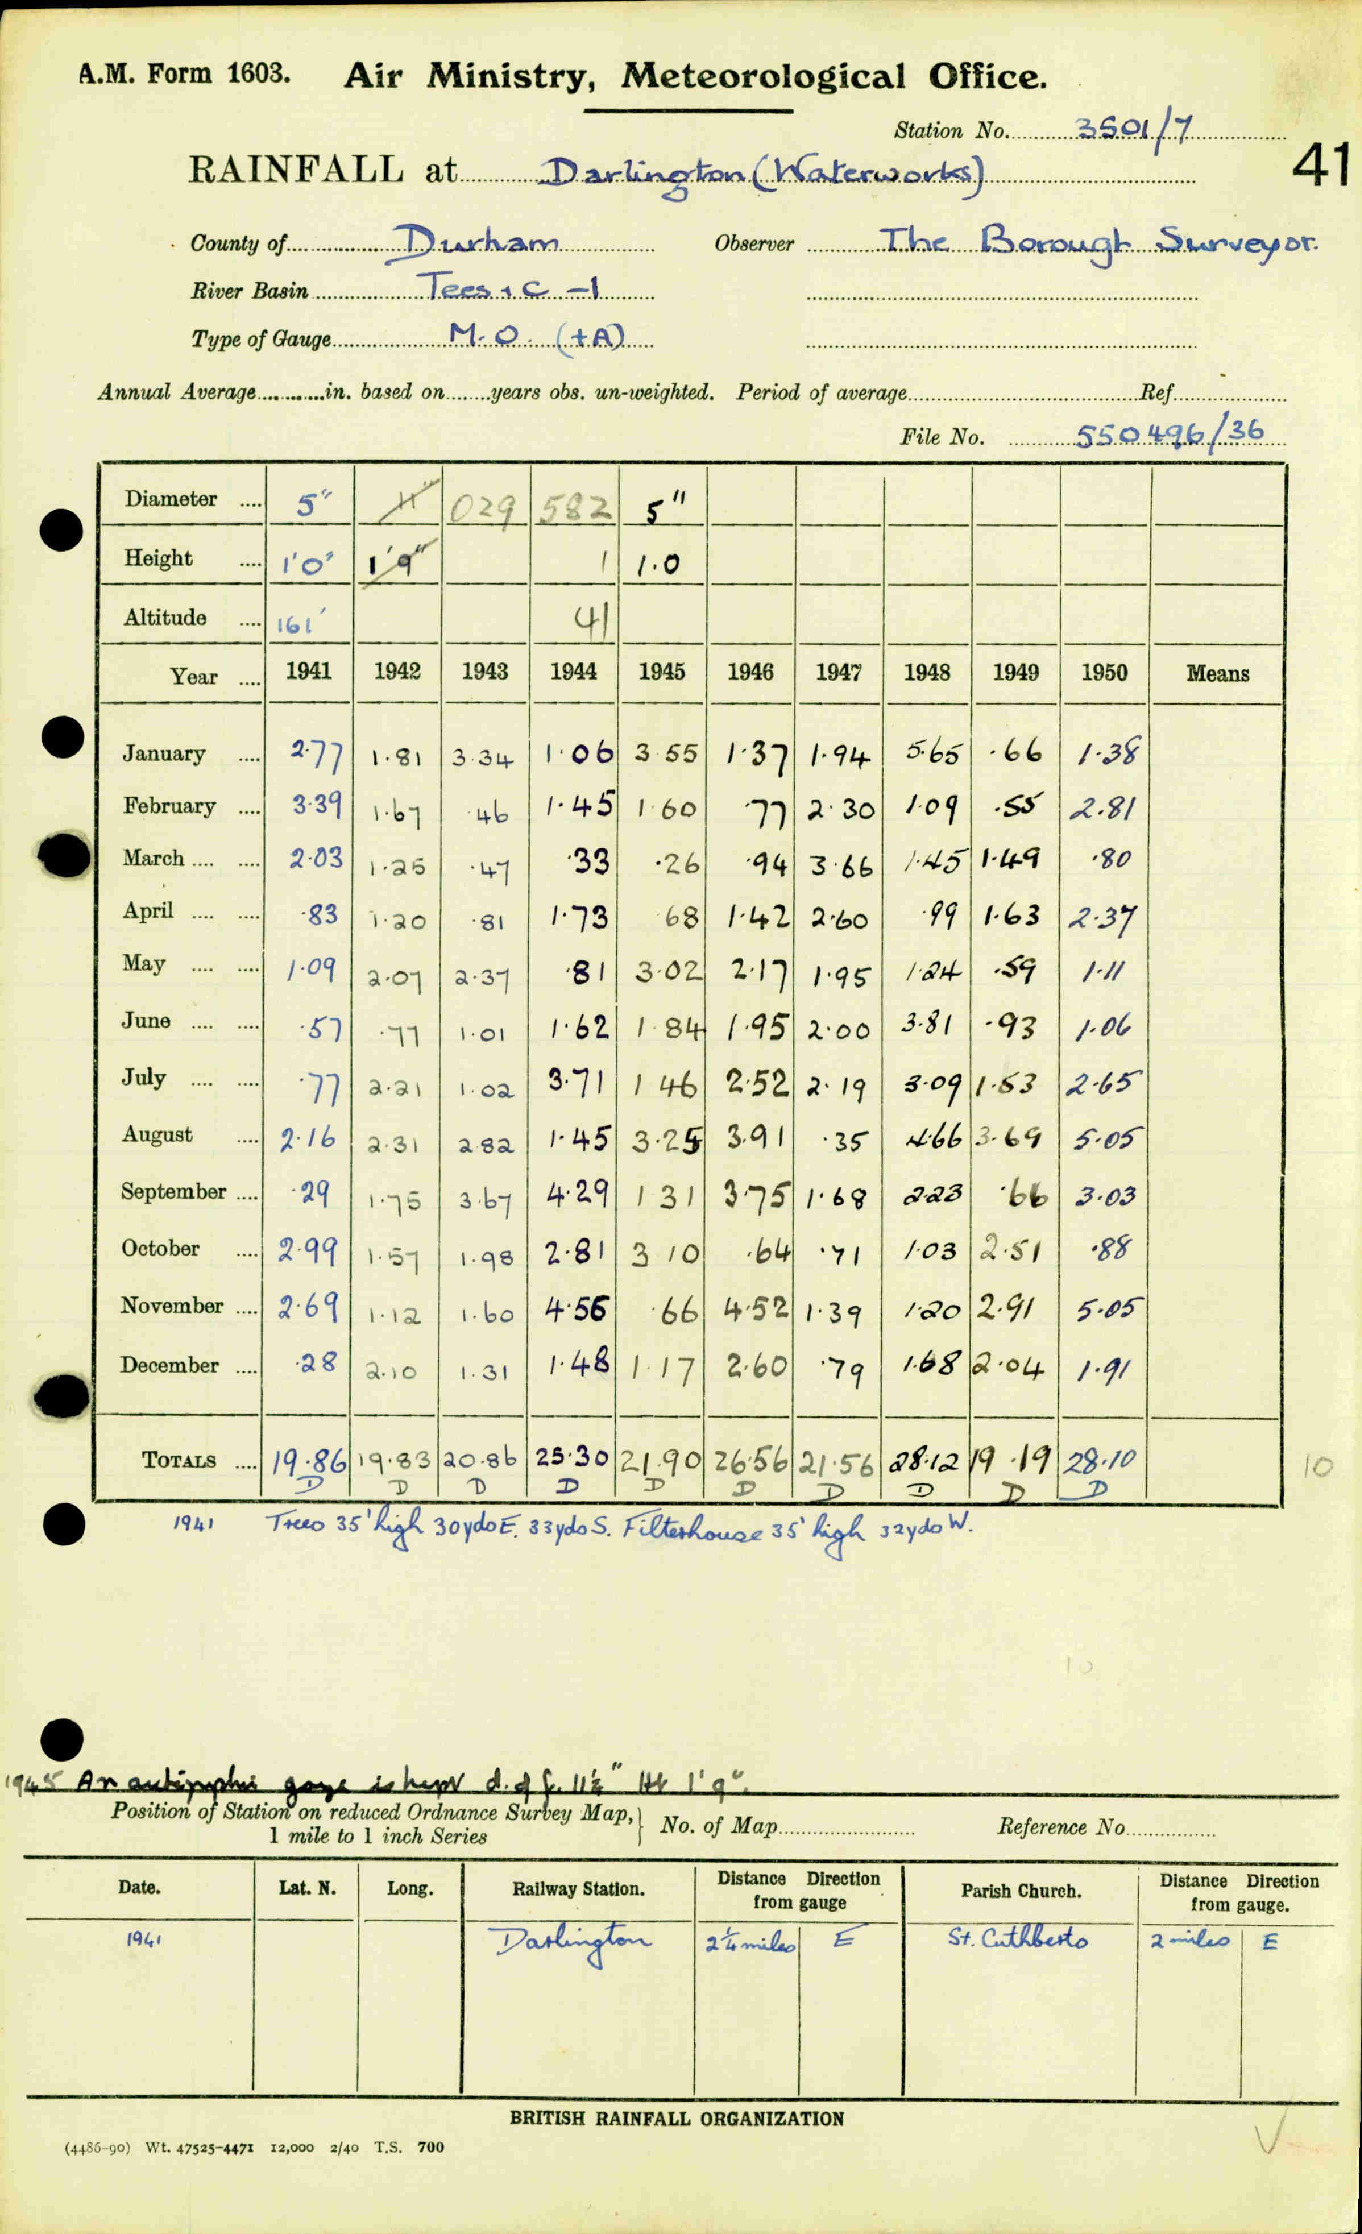 A.M. Form 1603. Air Ministry, Meteorological Office.
Station No. 3501/7
41
RAINFALL at Darlington (Waterworks)
County of Durham Observer The Borough Surveyor.
River Basin Tees + C -1
Type of Gauge M.O. (+A)
Annual Average in. based on years obs. un-weighted. Period of average Ref
File No. 550496/36
Diameter 5" 11" 029 582 5"
Height 1'0" 1'9" 1 1.0
Altitude 161' 41
Year 1941 1942 1943 1944 1945 1946 1947 1948 1949 1950 Means
January 2.77 1.81 3.34 1.06 3 55 1.37 1.94 5.65 .66 1.38
February 3.39 1.67 .46 1.45 1 60 .77 2.30 1.09 .55 2.81
March 2.03 1.25 .47 .33 .26 .94 3.66 1.45 1.49 .80
April .83 1.20 .81 1.73 68 1.42 2.60 .99 1.63 2.37
May 1.09 2.07 2.37 .81 3.02 2.17 1.95 1.24 .59 1.11
June .57 .77 1.01 1.62 1.84 1.95 2.00 3.81 .93 1.06
July .77 2.21 1.02 3.71 1 46 2.52 2.19 3.09 1.53 2.65
August 2.16 2.31 2.82 1.45 3.25 3.91 .35 4.66 3.69 5.05
September .29 1.75 3.67 4.29 1 31 3.75 1.68 2.23 .66 3.03
October 2.99 1.57 1.98 2.81 3 10 .64 .71 1.03 2.51 .88
November 2.69 1.12 1.60 4.56 .66 4.52 1.39 1.20 2.91 5.05
December .28 2.10 1.31 1.48 1.17 2.60 .79 1.68 2.04 1.91
TOTALS 19.86 19.83 20.86 25.30 21.90 26.56 21.56 28.12 19.19 28.10 10
D D D D D D D D D D
1941 Trees 35' high 30yds E. 33yds S. Filterhouse 35' high 32yds W.
10
1945 An autographic gauge is kept d. of f. 11½" Ht 1'9".
Position of Station on reduced Ordnance Survey Map, } No. of Map Reference No
1 mile to 1 inch Series
Date. Lat. N. Long. Railway Station. Distance Direction from gauge Parish Church. Distance Direction from gauge.
1941 Darlington 2¼ miles E St. Cuthberts 2 miles E
BRITISH RAINFALL ORGANIZATION
(4486-90) Wt. 47525-4471 12,000 2/40 T.S. 700